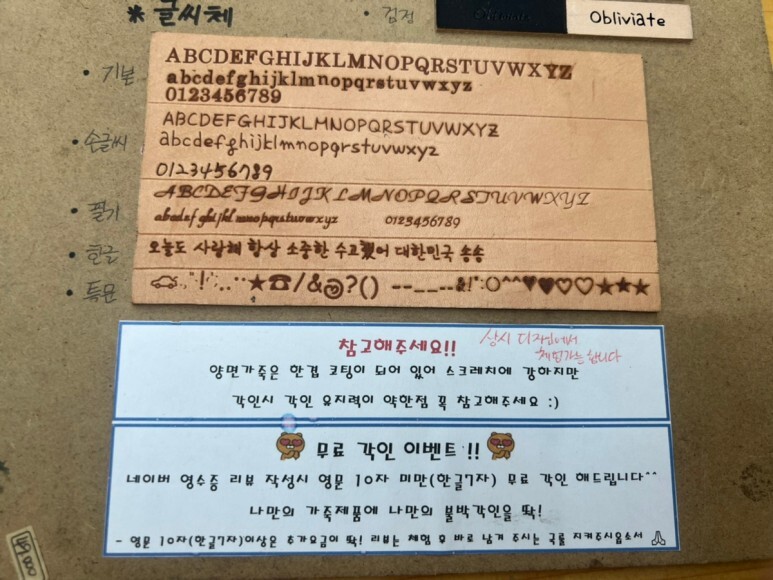 * 글씨체
• 검정
Obliviate
Obliviate
• 기본
ABCDEFGHIJKLMNOPQRSTUVWXYZ
abcdefghijklmnopqrstuvwxyz
0123456789
• 손글씨
ABCDEFGHIJKLMNOPQRSTUVWXYZ
abcdefghijklmnopqrstuvwxyz
0123456789
• 필기
ABCDEFGHIJKLMNOPQRSTUVWXYZ
abcdefghijklmnopqrstuvwxyz 0123456789
• 한글
오늘도 사랑해 항상 소중한 수고했어 대한민국 송송
• 특문
★☎/&@?() --__--&!*:○^^♥♥♡♡★★★
참고해주세요!!
상시 디자인에서
체험가능합니다
양면가죽은 한겹 코팅이 되어 있어 스크레치에 강하지만
각인시 각인 유지력이 약한점 꼭 참고해주세요 :)
무료 각인 이벤트 !!
네이버 영수증 리뷰 작성시 영문 10자 미만(한글7자) 무료 각인 해드립니다^^
나만의 가죽제품에 나만의 불박각인을 딱!
- 영문 10자(한글7자)이상은 추가요금이 딱! 리뷰는 체험 후 바로 남겨 주시는 국룰 지켜주시옵소서